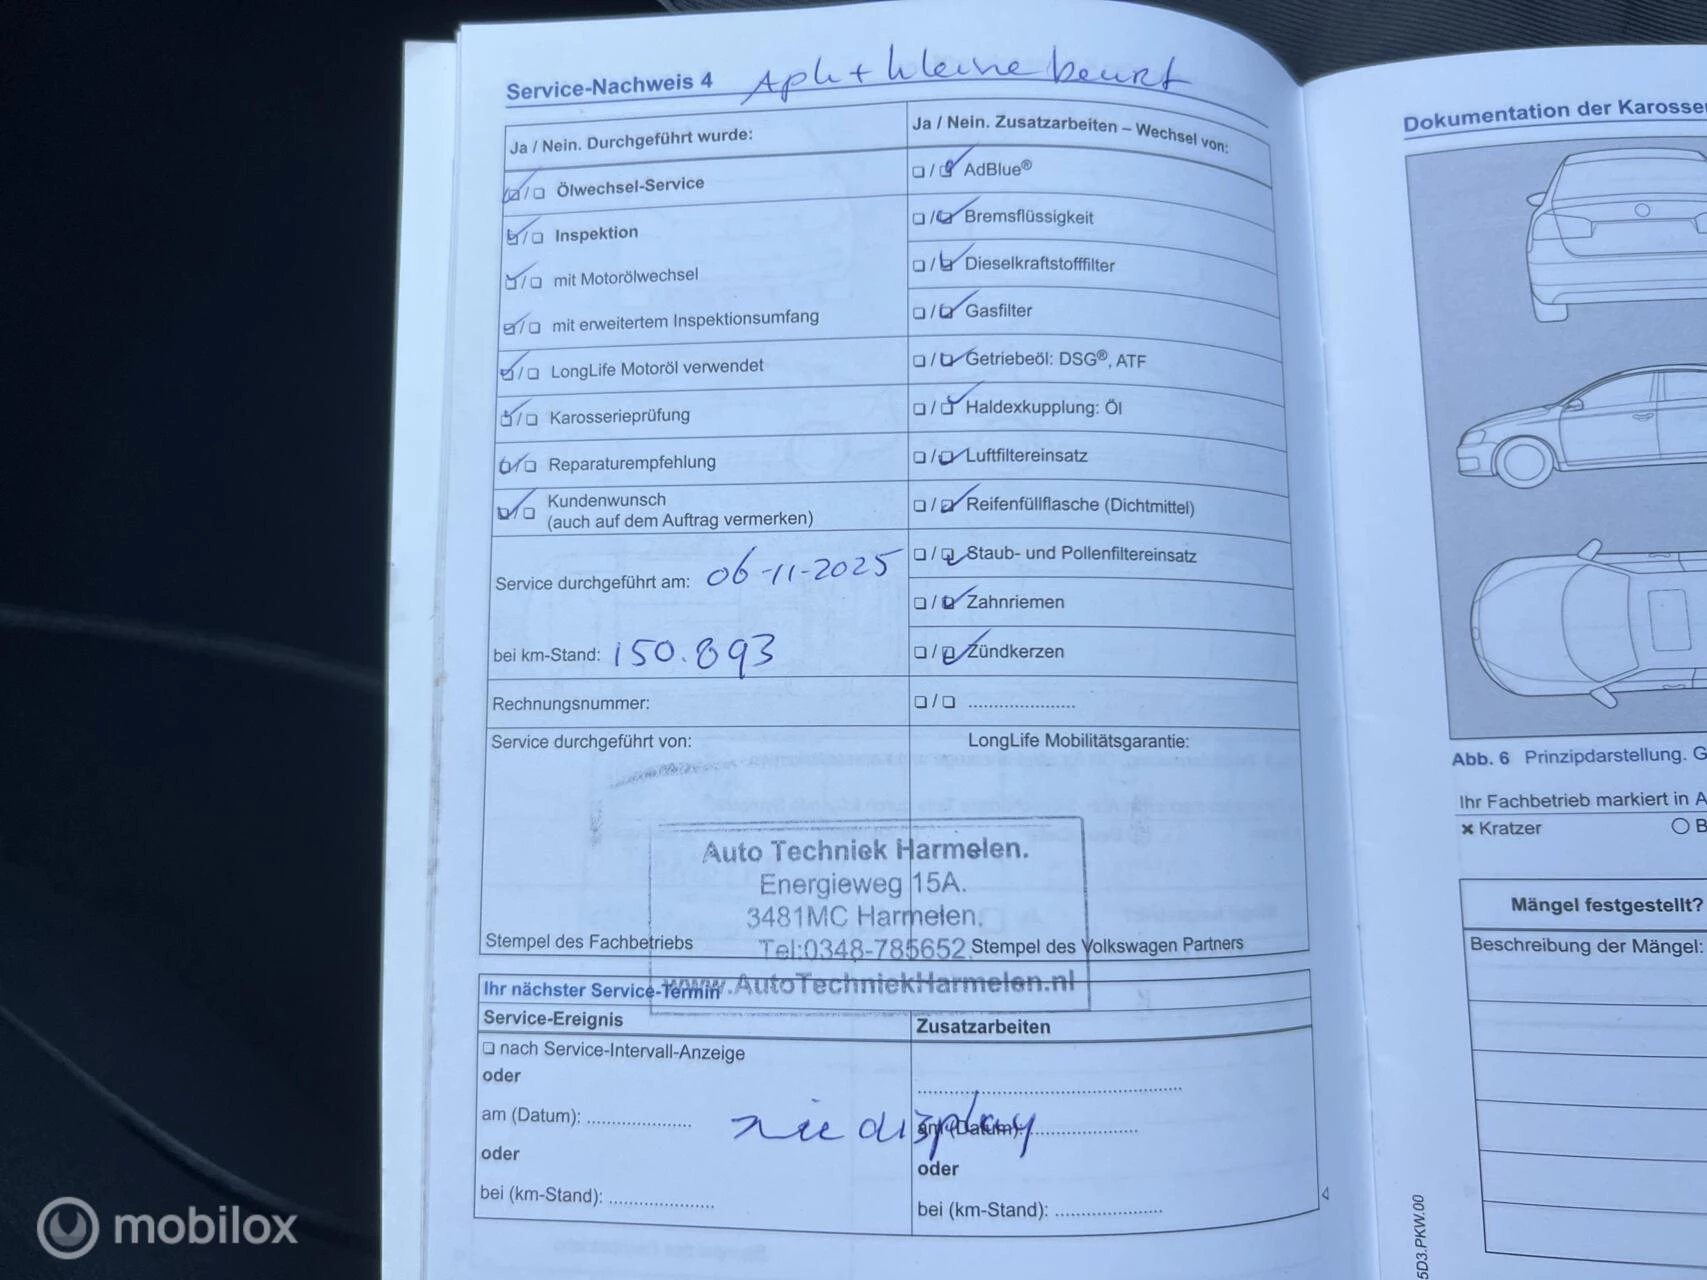 Service-Nachweis 4 Apk + kleine beurt
Ja / Nein. Durchgeführt wurde:
Ölwechsel-Service
Inspektion
mit Motorölwechsel
mit erweitertem Inspektionsumfang
LongLife Motoröl verwendet
Karosserieprüfung
Reparaturempfehlung
Kundenwunsch
(auch auf dem Auftrag vermerken)
Service durchgeführt am: 06-11-2025
bei km-Stand: 150.893
Rechnungsnummer:
Ja / Nein. Zusatzarbeiten – Wechsel von:
AdBlue®
Bremsflüssigkeit
Dieselkraftstofffilter
Gasfilter
Getriebeöl: DSG®, ATF
Haldexkupplung: Öl
Luftfiltereinsatz
Reifenfüllflasche (Dichtmittel)
Staub- und Pollenfiltereinsatz
Zahnriemen
Zündkerzen
Service durchgeführt von:
LongLife Mobilitätsgarantie:
Auto Techniek Harmelen.
Energieweg 15A.
3481MC Harmelen.
Tel:0348-785652
www.AutoTechniekHarmelen.nl
Stempel des Fachbetriebs
Stempel des Volkswagen Partners
Ihr nächster Service-Termin
Service-Ereignis
nach Service-Intervall-Anzeige
oder
am (Datum):
oder
bei (km-Stand):
Zusatzarbeiten
zie display
am (Datum):
oder
bei (km-Stand):
Dokumentation der
Abb. 6 Prinzipdarstellung.
Ihr Fachbetrieb markiert in
Kratzer
Mängel festgestellt?
Beschreibung der Mängel:
5D3.PKW.00
mobilox